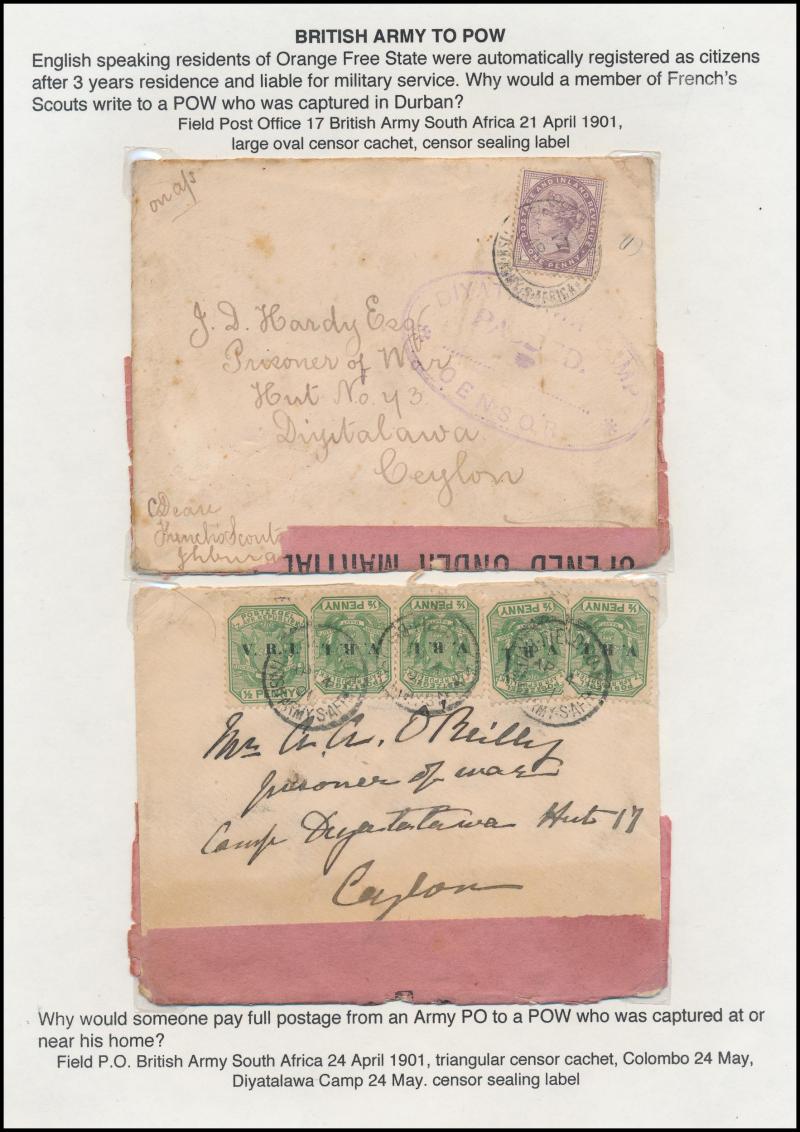 BRITISH ARMY TO POW
English speaking residents of Orange Free State were automatically registered as citizens
after 3 years residence and liable for military service. Why would a member of French's
Scouts write to a POW who was captured in Durban?
Field Post Office 17 British Army South Africa 21 April 1901,
large oval censor cachet, censor sealing label
on a/s
POSTAGE AND INLAND REVENUE
ONE PENNY
ARMY.S.AFRICA
DIYATALAWA CAMP
PASSED.
CENSOR
J. D. Hardy Esq
Prisoner of War
Hut No. 43
Diyitalawa
Ceylon
French's Scouts
OPENED UNDER MARTIAL
POSTZEGEL
½ PENNY
½ PENNY
½ PENNY
½ PENNY
½ PENNY
V.R.I.
V.R.I.
V.R.I.
V.R.I.
V.R.I.
ARMY.S.AFR
Mr A. A. O'Reilly
prisoner of war
Camp Diyatatawa Hut 17
Ceylon
Why would someone pay full postage from an Army PO to a POW who was captured at or
near his home?
Field P.O. British Army South Africa 24 April 1901, triangular censor cachet, Colombo 24 May,
Diyatalawa Camp 24 May. censor sealing label